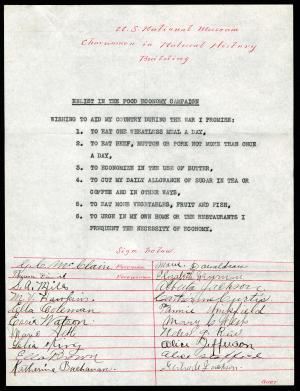 U.S. National Museum
Charwomen in Natural History
Building
ENLIST IN THE FOOD ECONOMY CAMPAIGN
WISHING TO AID MY COUNTRY DURING THE WAR I PROMISE:
1. TO EAT ONE WHEATLESS MEAL A DAY,
2. TO EAT BEEF, MUTTON OR PORK NOT MORE THAN ONCE
A DAY,
3. TO ECONOMIZE IN THE USE OF BUTTER,
4. TO CUT MY DAILY ALLOWANCE OF SUGAR IN TEA OR
COFFEE AND IN OTHER WAYS,
5. TO EAT MORE VEGETABLES, FRUIT AND FISH,
6. TO URGE IN MY OWN HOME OR THE RESTAURANTS I
FREQUENT THE NECESSITY OF ECONOMY.
Sign below
McClain
S.A. Mills
Hawkins
Lella Coleman
Watson
Marie
King
Brown
Katherine Buchanan
Marie Donaldson
Elizabeth
Alberta Jackson
Catherine Curtis
Fannie
Mary
Alice Jefferson
Alice
Gertrude Jackson